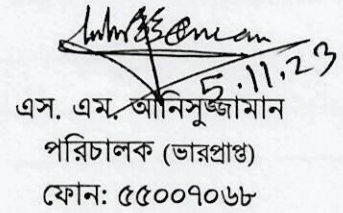 5.11.23
এস. এম. আনিসুজ্জামান
পরিচালক (ভারপ্রাপ্ত)
ফোন: ৫৫০০৭০৬৮